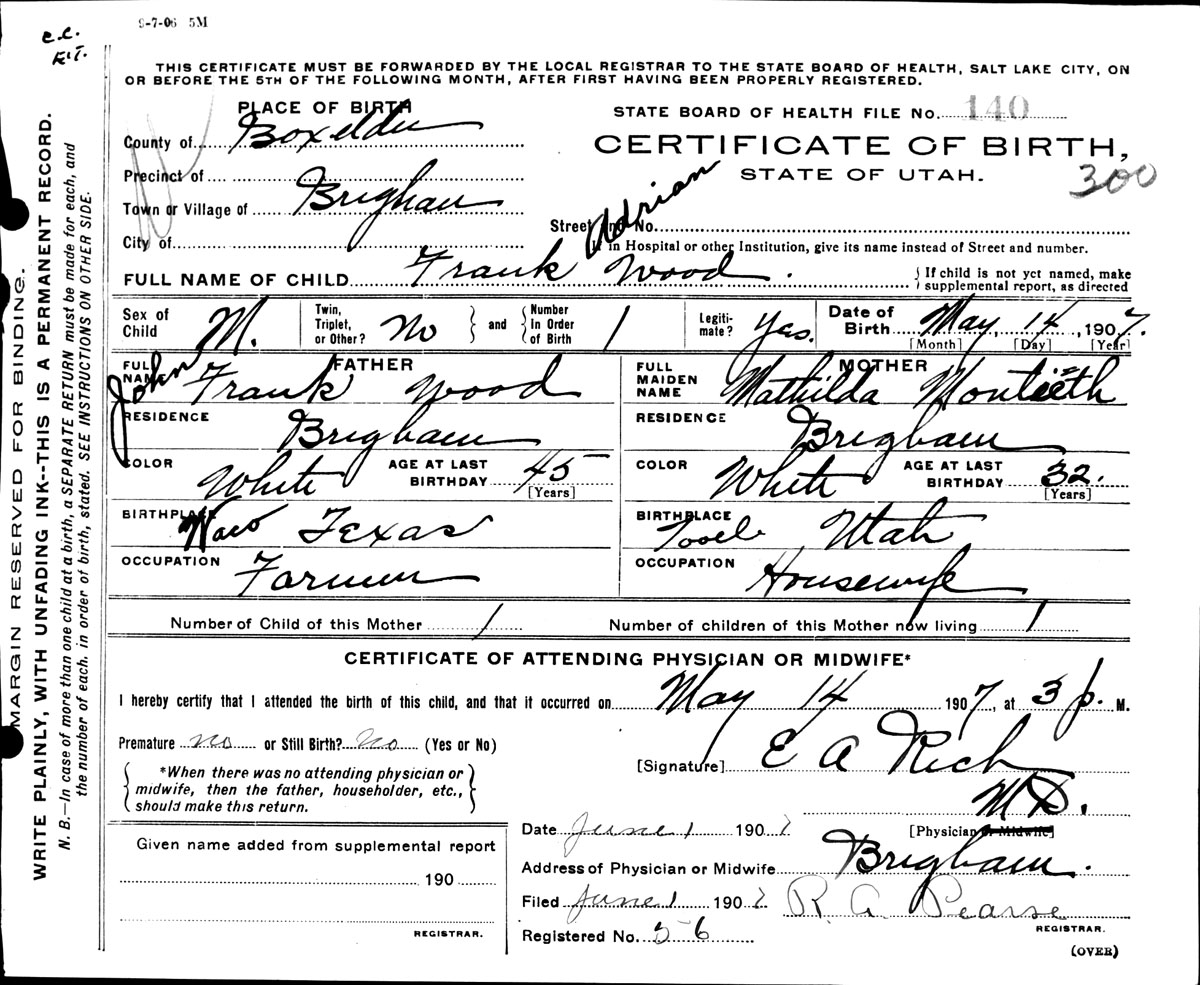 9-7-06 5M
C.C.
E.T.
THIS CERTIFICATE MUST BE FORWARDED BY THE LOCAL REGISTRAR TO THE STATE BOARD OF HEALTH, SALT LAKE CITY, ON
OR BEFORE THE 5TH OF THE FOLLOWING MONTH, AFTER FIRST HAVING BEEN PROPERLY REGISTERED.
PLACE OF BIRTH
STATE BOARD OF HEALTH FILE No. 140
County of Boxelder
CERTIFICATE OF BIRTH,
STATE OF UTAH.
300
Precinct of
Town or Village of Brigham
Street and No.
City of
If in Hospital or other Institution, give its name instead of Street and number.
Adrian
FULL NAME OF CHILD Frank Wood.
If child is not yet named, make
supplemental report, as directed
Sex of Child M. Twin, Triplet, or Other? No and Number In Order of Birth 1 Legiti-mate? Yes. Date of Birth May, 14, 1907.
[Month] [Day] [Year]
FATHER
FULL NAME John Frank Wood
RESIDENCE
Brigham
COLOR White AGE AT LAST BIRTHDAY 45
[Years]
BIRTHPLACE
Waco Texas
OCCUPATION
Farmer
MOTHER
FULL MAIDEN NAME Mathilda Monteith
RESIDENCE
Brigham
COLOR White AGE AT LAST BIRTHDAY 32.
[Years]
BIRTHPLACE
Tooele Utah
OCCUPATION
Housewife
Number of Child of this Mother 1 Number of children of this Mother now living 1
CERTIFICATE OF ATTENDING PHYSICIAN OR MIDWIFE*
I hereby certify that I attended the birth of this child, and that it occurred on May 14 1907, at 3 p. M.
Premature no or Still Birth? No (Yes or No)
*When there was no attending physician or
midwife, then the father, householder, etc.,
should make this return.
[Signature] E A Rich
M D.
[Physician or Midwife]
Date June 1 1907
Address of Physician or Midwife Brigham.
Filed June 1 1907 R. G. Pearse
REGISTRAR.
Registered No. 56
(OVER)
Given name added from supplemental report
190
REGISTRAR.
MARGIN RESERVED FOR BINDING.
WRITE PLAINLY, WITH UNFADING INK--THIS IS A PERMANENT RECORD.
N. B.—In case of more than one child at a birth, a SEPARATE RETURN must be made for each, and
the number of each, in order of birth, stated. SEE INSTRUCTIONS ON OTHER SIDE.